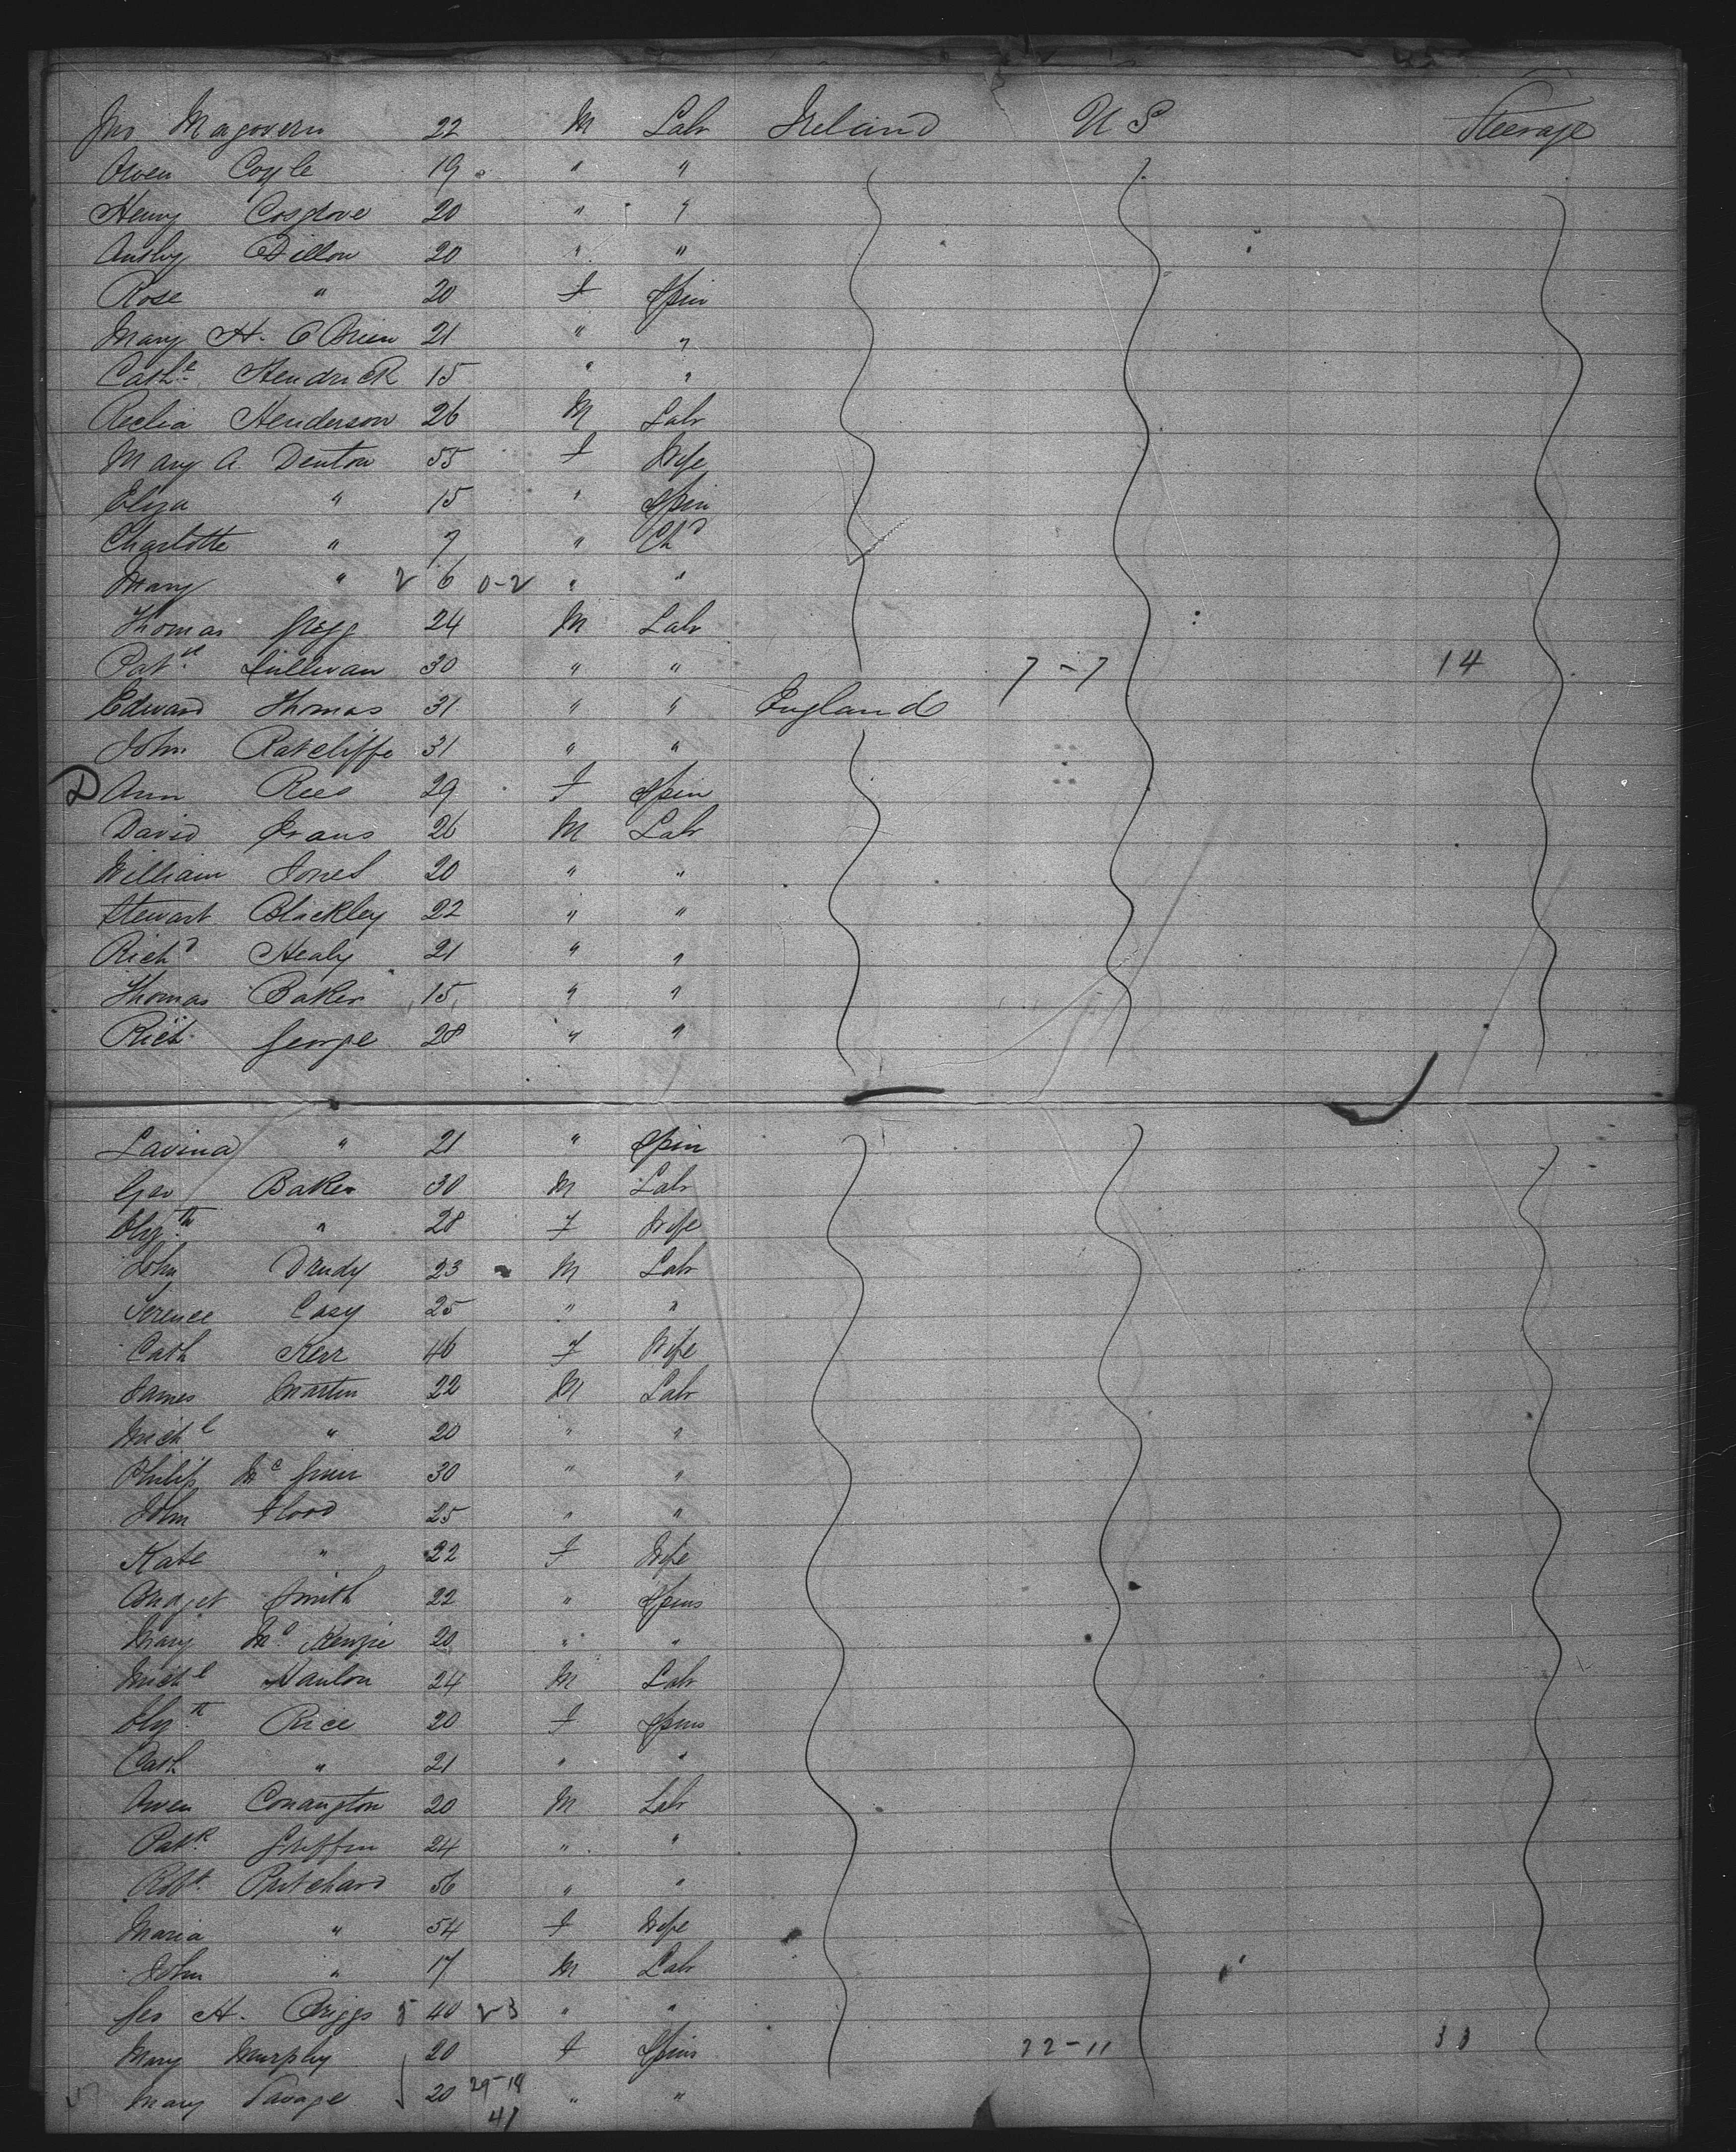 Jno Magovern 22 M Labr Ireland U S Steerage
Owen Coyle 19 " "
Henry Cosgrove 20 " "
Anthy Dillon 20 " "
Rose " 20 F Spin
Mary H. O Brien 21 " "
Cathe Hendrick 15 " "
Henderson 26 M Labr
Mary A Denton 55 F Wife
Eliza " 15 " Spin
Charlotte " 7 " Chd
Mary " 2 6 0-2 " "
Thomas Gregg 24 M Labr
Patk Sullivan 30 " " 7-7 14
Edward Thomas 31 " " England
John Ratcliffe 31 " "
D Ann Rees 29 F Spin
David Evans 26 M Labr
William Jones 20 " "
Stewart Blackley 22 " "
Richd Healy 21 " "
Thomas Baker 15 " "
Rich George 28 " "
Lavina " 21 " Spin
Geo Baker 30 M Labr
Elizth " 28 F Wife
John Drudy 23 M Labr
Terence Casy 25 " "
Cath Kerr 46 F Wife
James Martin 22 M Labr
Michl " 20 " "
Philip Mc 30 " "
John Flood 25 " "
Kate " 22 F Wife
Bridget Smith 22 " Spins
Mary Mc Kenzie 20 " "
Michl Hanlon 24 M Labr
Elizth Rice 20 F Spins
Cath " 21 " "
Owen Conangton 20 M Labr
Patk Griffin 24 " "
Robt Pritchard 56 " "
Maria " 54 F Wife
John " 17 M Labr
Geo H. Briggs 5 40 23 " "
Mary Murphy 20 F Spins 22-11 33
Mary Savage 20 29-18 " "
41